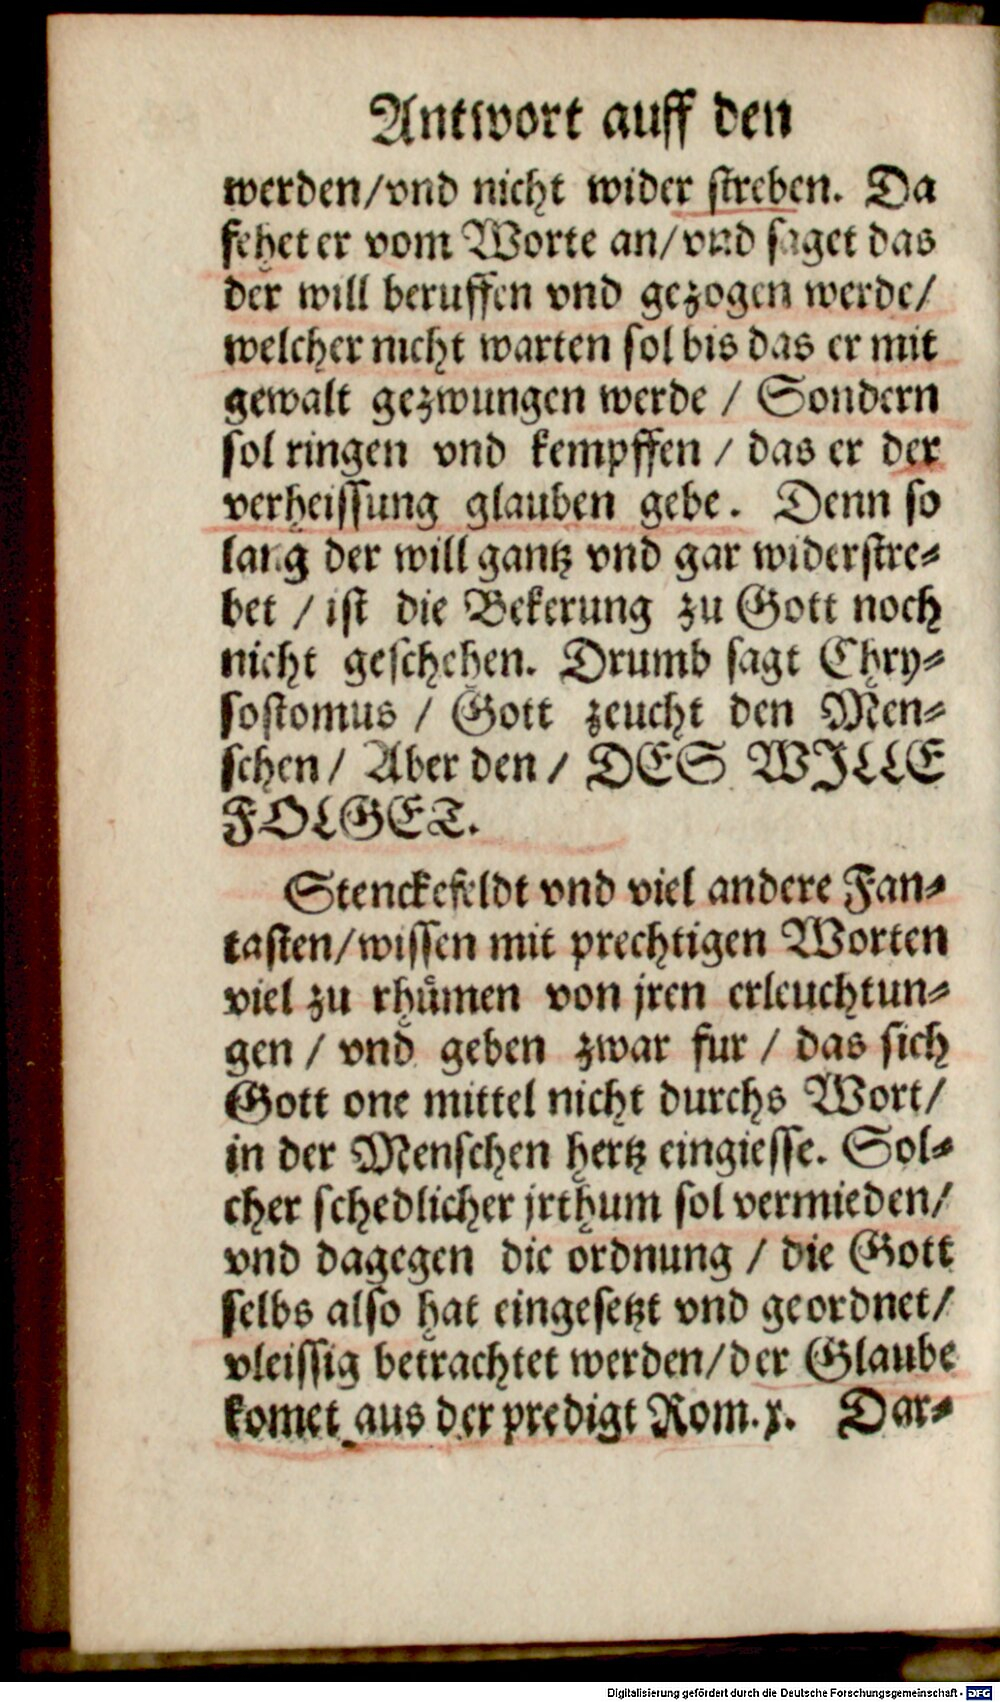 Antwort auff den
werden/vnd nicht wider streben. Da
fehet er vom Worte an/vnd saget das
der will beruffen vnd gezogen werde/
welcher nicht warten sol bis das er mit
gewalt gezwungen werde / Sondern
sol ringen vnd kempffen / das er der
verheissung glauben gebe. Denn so
lang der will gantz vnd gar widerstre-
bet / ist die Bekerung zu Gott noch
nicht geschehen. Drumb sagt Chry-
sostomus / Gott zeucht den Men-
schen / Aber den / DES WILLE
FOLGET.
Stenckefeldt vnd viel andere Fan-
tasten/wissen mit prechtigen Worten
viel zu rhümen von jren erleuchtun-
gen / vnd geben zwar fur / das sich
Gott one mittel nicht durchs Wort/
in der Menschen hertz eingiesse. Sol-
cher schedlicher jrthum sol vermieden/
vnd dagegen die ordnung / die Gott
selbs also hat eingesetzt vnd geordnet/
vleissig betrachtet werden/der Glaube
komet aus der predigt Rom.x. Dar-
Digitalisierung gefördert durch die Deutsche Forschungsgemeinschaft - DFG